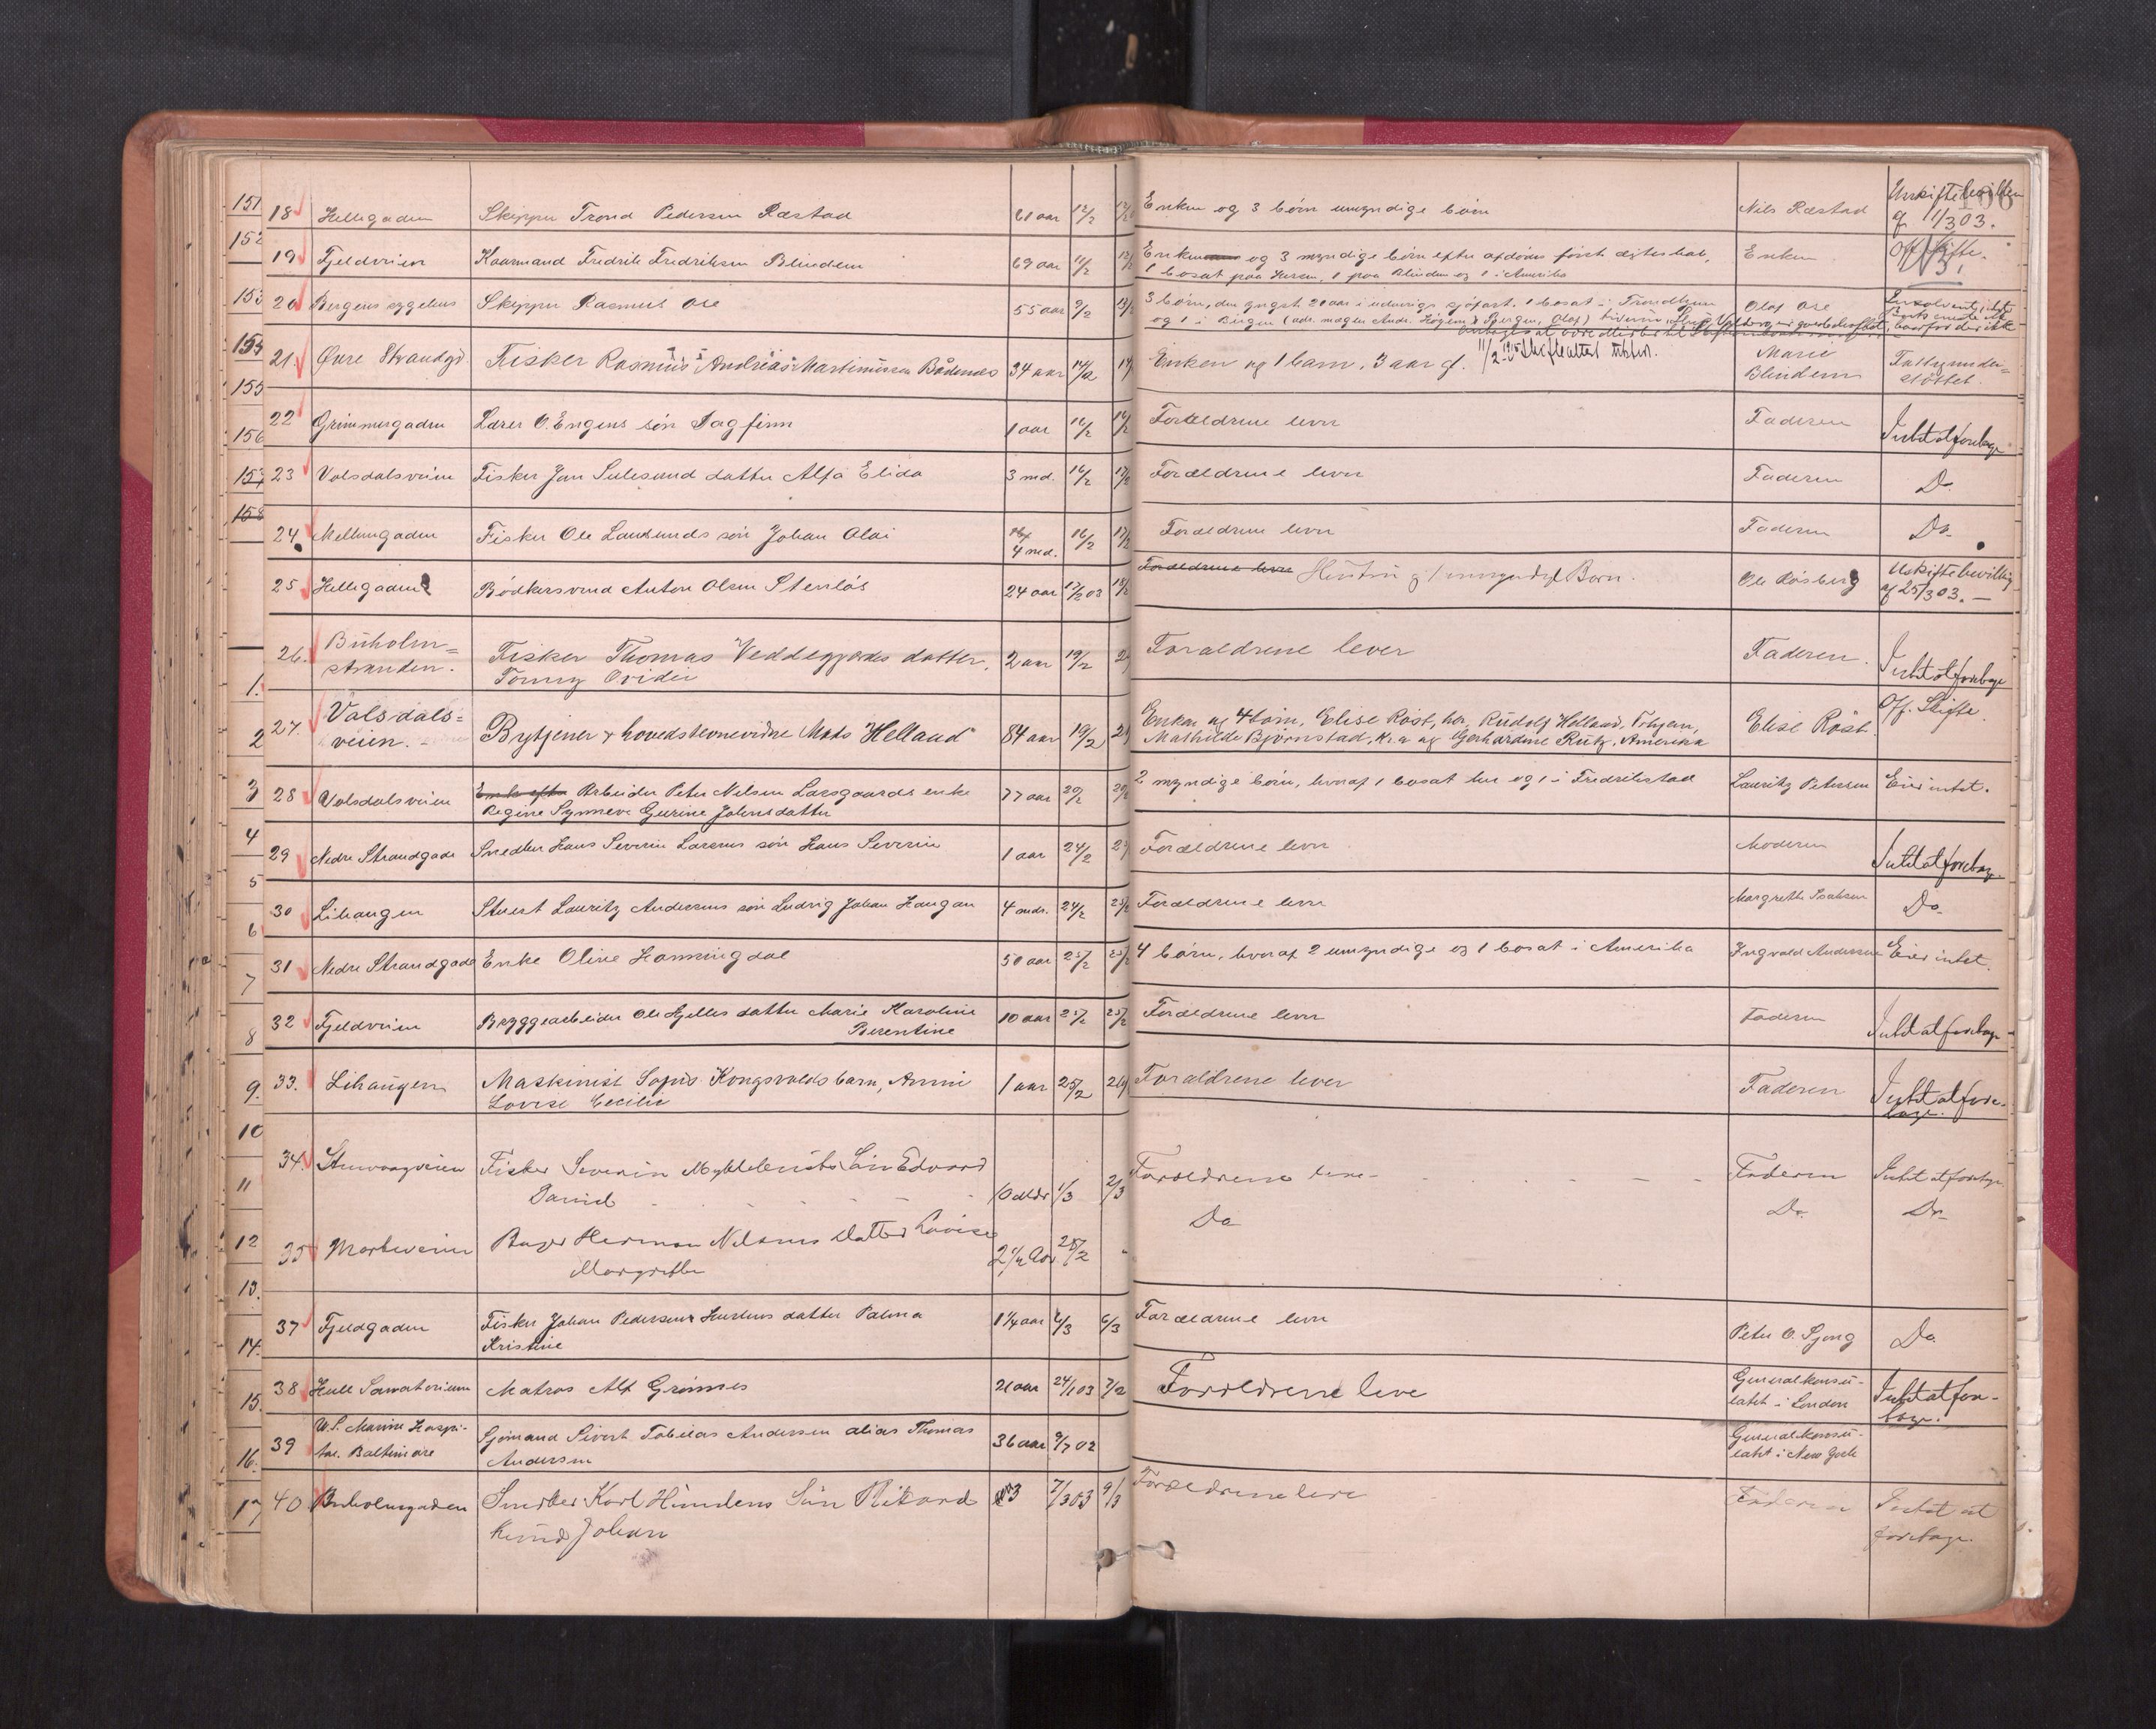 151
152
153
155
156
157
158
1.
2
3
4
5
6
7
8
9.
10
11
12
13.
14.
15.
16.
17
18 Hellegaden Skipper Trond Pedersen Ræstad 61 aar 12/2 Enken og 3 børn umyndige børn Nils Ræstad Uskiftebevilling
af 1/3 03.
19 Fjeldveien Kaarmand Fredrik Fredriksen Blindem 69 aar 11/2 12/2 Enken og 3 myndige børn efter afdødes først ægteskab, Enken Off. skifte.
1 bosat paa Hersen, 1 paa Blindem og 1 i Amerika
20 Bergens sygehus Skipper Rasmus Ose 55 aar 9/2 13/2 3 børn, den yngst. 20 aar i udenrigs sjøfart. 1 bosat i Trondhjem Olaf Ose
og 1 i Bergen
21. Øvre Strandgd. Fisker Rasmus Andreas Martinussen Bådsnes 34 aar 14/2 Enken og 1 barn, 3 aar gl. Marie
Blindem Fattigunder=
støttet.
22 Grimmergaden Lærer O. Engens søn Dagfinn 1 aar 16/2 16/2 Forældrene lever Faderen Intet at foretage
23 Volsdalsveien Fisker Jan Sulesund datter Alfa Elida 3 md. 16/2 17/2 Forældrene lever Faderen Do.
24. Mellemgaden Fisker Ole Lausunds søn Johan Olai 4 med. 16/2 17/2 Forældrene lever Faderen Do.
25 Hellegaden Bødkersvend Anton Olsen Stenløs 24 aar 17/2 03 18/2 Forældrene lever Hustru og 1 umyndigt Barn. Ole Røsberg Uskiftebevillig
af 25/3 03. —
26. Buholm=
stranden. Fisker Thomas Veddegjerdes datter, 2 aar 19/2 Forældrene lever Faderen. Intet at foretage
27. Volsdals=
veien. Bytjener & hovedstevnevidne Mats Helland 84 aar 19/2 Enken og 4 børn, Elise Røst, her, Rudolf Helland, Trhjem, Elise Røst Off. Skifte.
Mathilde Bjørnstad, Kra og Gerhardine Rutz, Amerika
28 Volsdalsveien Enke efter Arbeider Peter Nilsen Larsgaards enke 77 aar 20/2 20/2 2 myndige børn, hvoraf 1 bosat her og 1 i Fredrikstad Lauritz Petersen Eier intet.
Regine Synneve Gurine Johnsdatter
29 Nedre Strandgade Snedker Hans Severin Larsens søn Hans Severin 1 aar 24/2 Forældrene lever Moderen Intet at foretage
30 Lihaugen Stuert Lauritz Andersens søn Ludvig Johan Haugan 4 mdr. 24/2 25/2 Forældrene lever Margrethe Isaksen Do.
31 Nedre Strandgade Enke Oline Hanningdal 50 aar 25/2 4 børn, hvoraf 2 umyndige og 1 bosat i Amerika Ingvald Andersen Eier intet.
32 Fjeldveien Bryggearbeider Ole Hjelles datter Marie Karoline 10 aar 25/2 25/2 Forældrene lever Faderen Intet at foretage
Berentine
33. Lihaugen Maskinist Sofus Kongsvolds barn, Anni 1 aar 25/2 Forældrene lever Faderen Intet at fore-
Lovise Cecilie tage.
34. Fisker Severin Myklebusts Søn Edvard
David 1/3 2/3 Forældrene leve Faderen Intet at foretage
35 Bager Herman Nilsens Datter Lovise
Margrethe 28/2 Do Do. Do
37 Fjeldgaden Fisker Johan Pedersens datter Palma 1 1/4 aar 6/3 Forældrene lever Peter O. Sjong Do.
Kristine
38 Hull Sanatorium Matros Alf Grønnes 21 aar 24/1 03 7/2 Forældrene leve Generalkonsu-
latet i London Intet at fore-
tage.
39 U.S. Marine Hospi-
tal. Baltimore Sjømand Sivert Tobias Andersen alias Thomas 36 aar 9/7 02 Generalkonsu-
latet i New York
Andersen
40 Buholmgaden Smed Karl Søn Rikard 3 7/3 03 9/3 Forældrene leve Faderen Intet at
Knud Johan foretage.